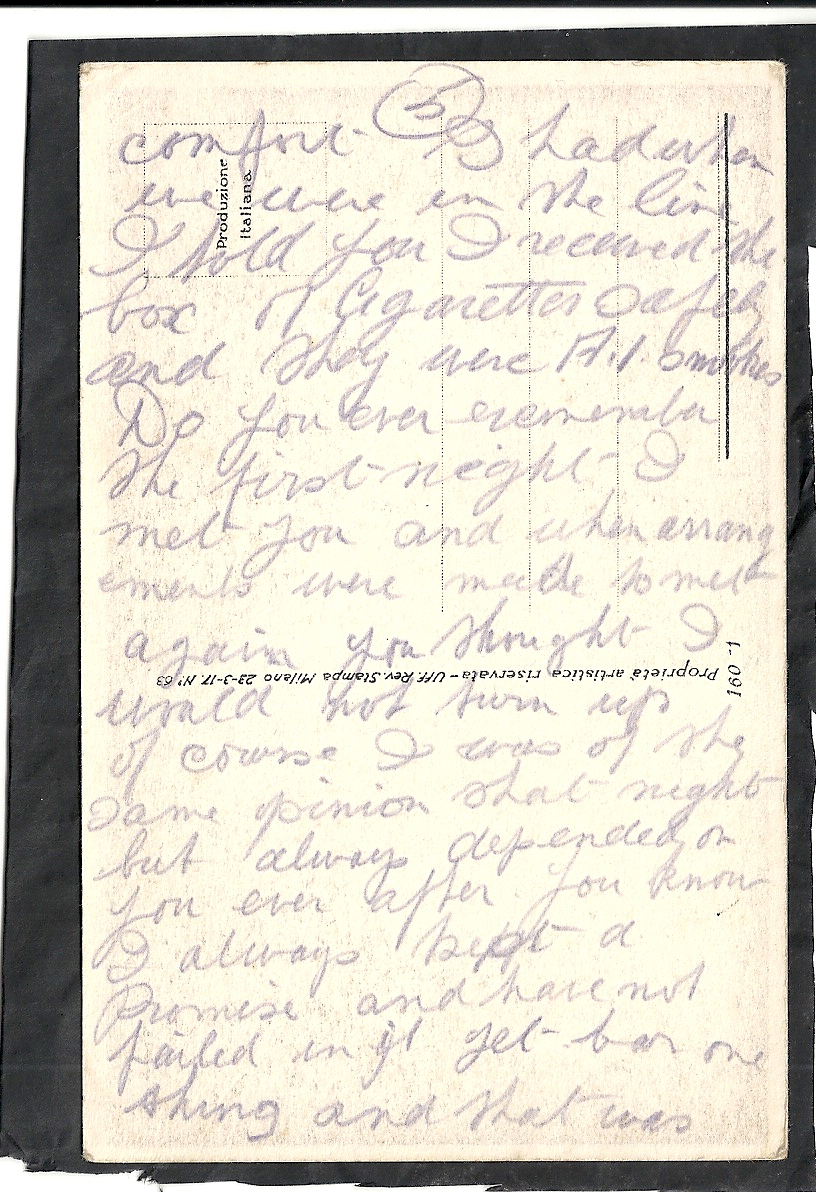 5
comfort I had when
we were in the line
I told you I received the
box of Cigarettes safely
and they were A.1. smokes
Do you ever remember
the first night I
met you and when arrang
ements were made to met
again you thought I
would not turn up
of course I was of the
same opinion that night
but always depended on
you ever after. You know
I always kept a
Promise and have not
failed in it yet bar one
thing and that was
Produzione
Italiana
Proprietà artistica riservata - Uff. Rev. Stampa Milano 23-3-17 N° 63
160-1